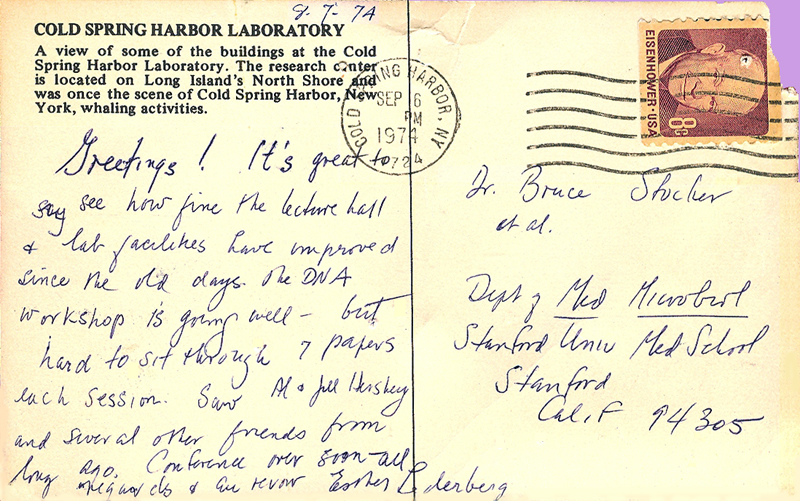 9-7-74
COLD SPRING HARBOR LABORATORY
A view of some of the buildings at the Cold
Spring Harbor Laboratory. The research center
is located on Long Island's North Shore and
was once the scene of Cold Spring Harbor, New
York, whaling activities.
COLD SPRING HARBOR, NY
SEP 6
PM
1974
11724
EISENHOWER·USA
8c
Greetings! It's great to
say see how fine the lecture hall
& lab facilities have improved
since the old days. The DNA
workshop is going well – but
hard to sit through 7 papers
each session. Saw Al & Jill Hershey
and several other friends from
long ago. Conference over soon – all
regards & au revoir Esther Lederberg
Dr. Bruce Stocker
et al.
Dept of Med Microbiol
Stanford Univ Med School
Stanford
Calif 94305